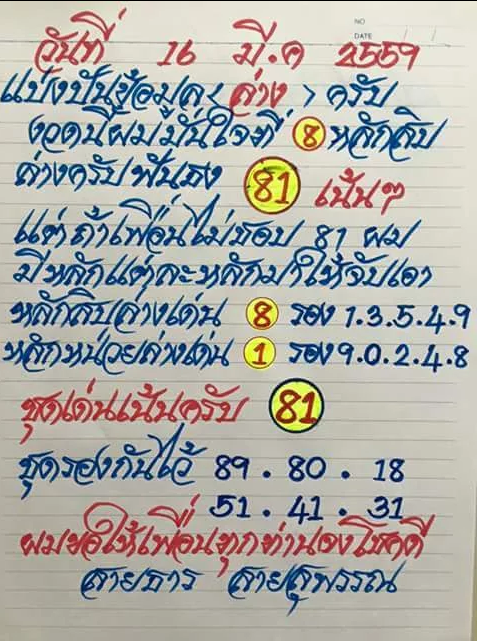 NO
DATE / /
วันที่ 16 มี.ค 2559
แบ่งปันข้อมูล < ล่าง > ครับ
งวดนี้ผมมั่นใจที่ 8 หลักสิบ
ล่างครับฟันธง 81 เน้นๆ
แต่ถ้าเพื่อนไม่ชอบ 81 ผม
มีหลักแต่ละหลักมาให้จับเอา
หลักสิบล่างเด่น 8 รอง 1.3.5.4.9
หลักหน่วยล่างเด่น 1 รอง 9.0.2.4.8
ชุดเด่นเน้นครับ 81
ชุดรองกันไว้ 89 . 80 . 18
51 . 41 . 31
ผมขอให้เพื่อนทุกท่านจงโชคดี
สายธาร สายสุพรรณ